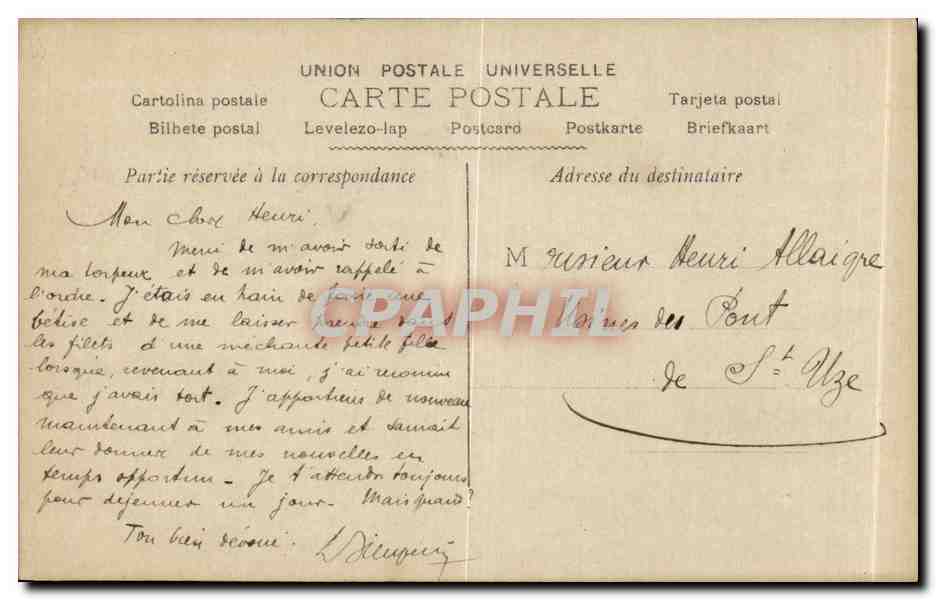 UNION POSTALE UNIVERSELLE
Cartolina postale CARTE POSTALE Tarjeta postal
Bilhete postal Levelezo-lap Postcard Postkarte Briefkaart
Partie réservée à la correspondance
Mon cher Henri.
Merci de m'avoir sorti de
ma torpeur et de m'avoir rappelé à
l'ordre. J'étais en train de faire une
bêtise et de me laisser prendre dans
les filets d'une méchante petite fille
lorsque, revenant à moi, j'ai reconnu
que j'avais tort. J'appartiens de nouveau
maintenant à mes amis et
leur donner de mes nouvelles en
temps opportun. Je t'attends toujours
pour déjeuner un jour. Mais quand?
Ton bien dévoué.
Adresse du destinataire
Monsieur Henri Allaigre
Usines des Pont
de St Uze
CPAPHIL